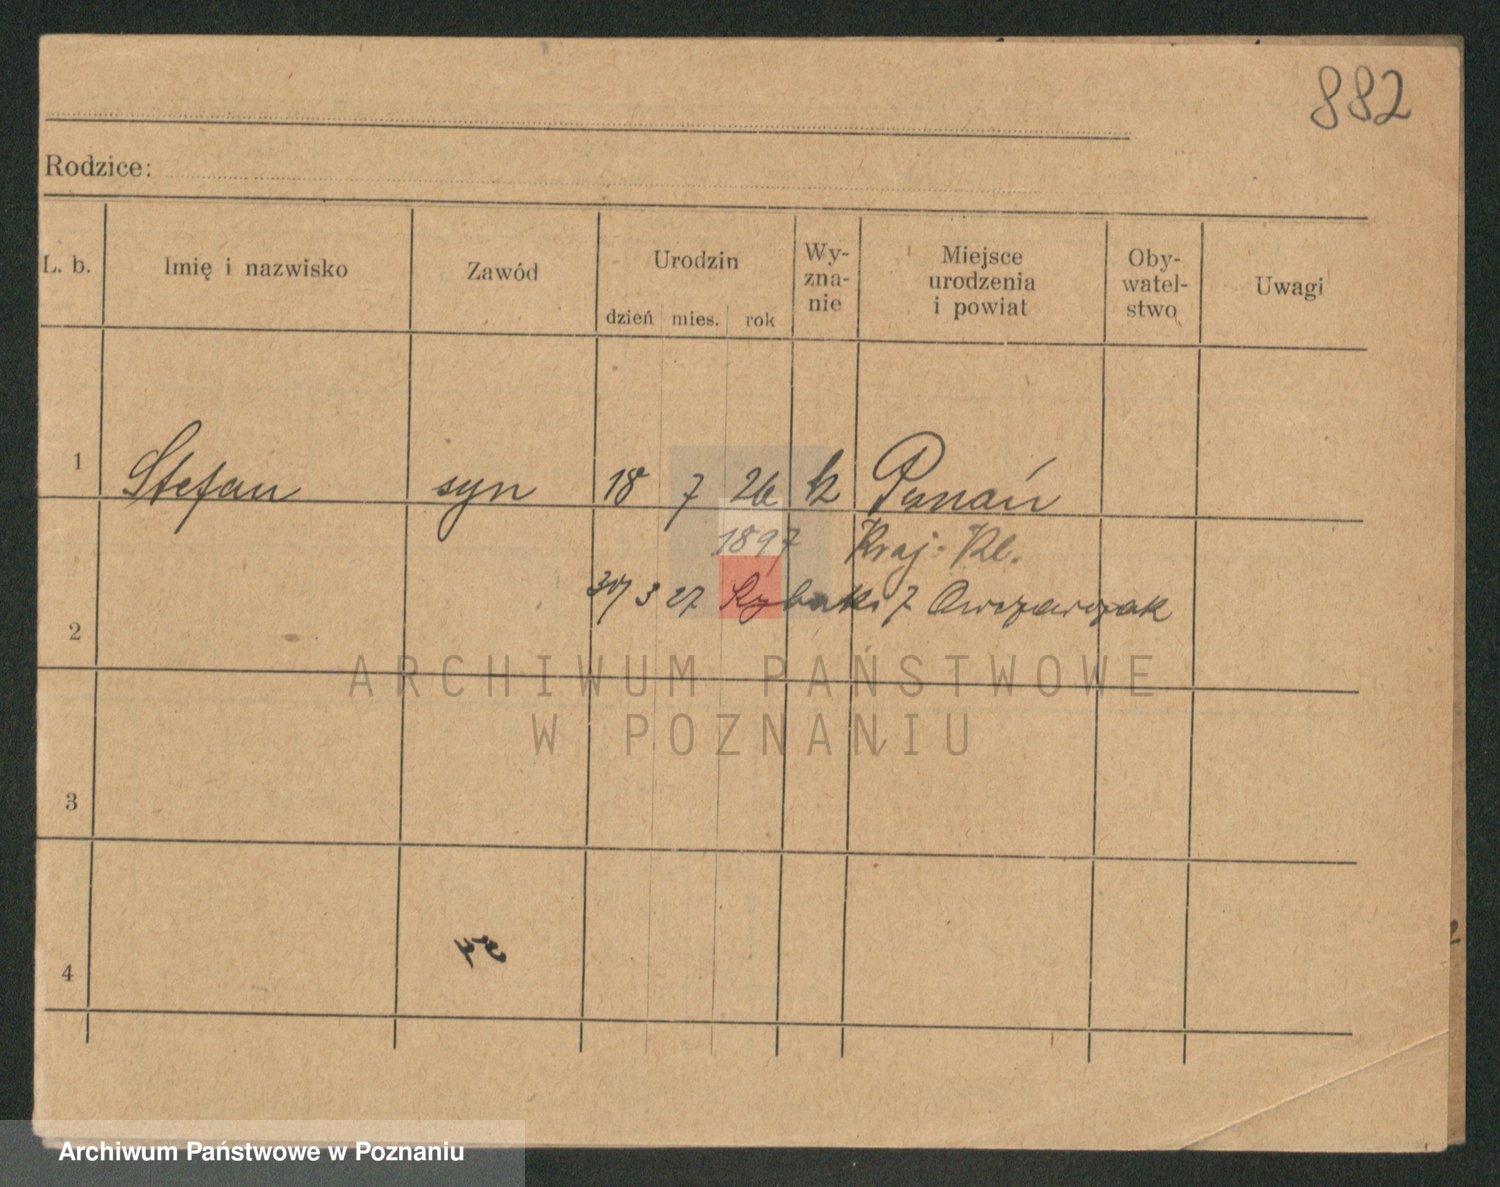 882
Rodzice:
L. b. Imię i nazwisko Zawód Urodzin dzień mies. rok Wy-zna-nie Miejsce urodzenia i powiat Oby-watel-stwo Uwagi
1 Stefan syn 18 7 26 k Poznań
1897 Kraj: Kl.
30/3 27 Rybaki 7 Owczarczak
2
ARCHIWUM PAŃSTWOWE
W POZNANIU
3
4
Archiwum Państwowe w Poznaniu